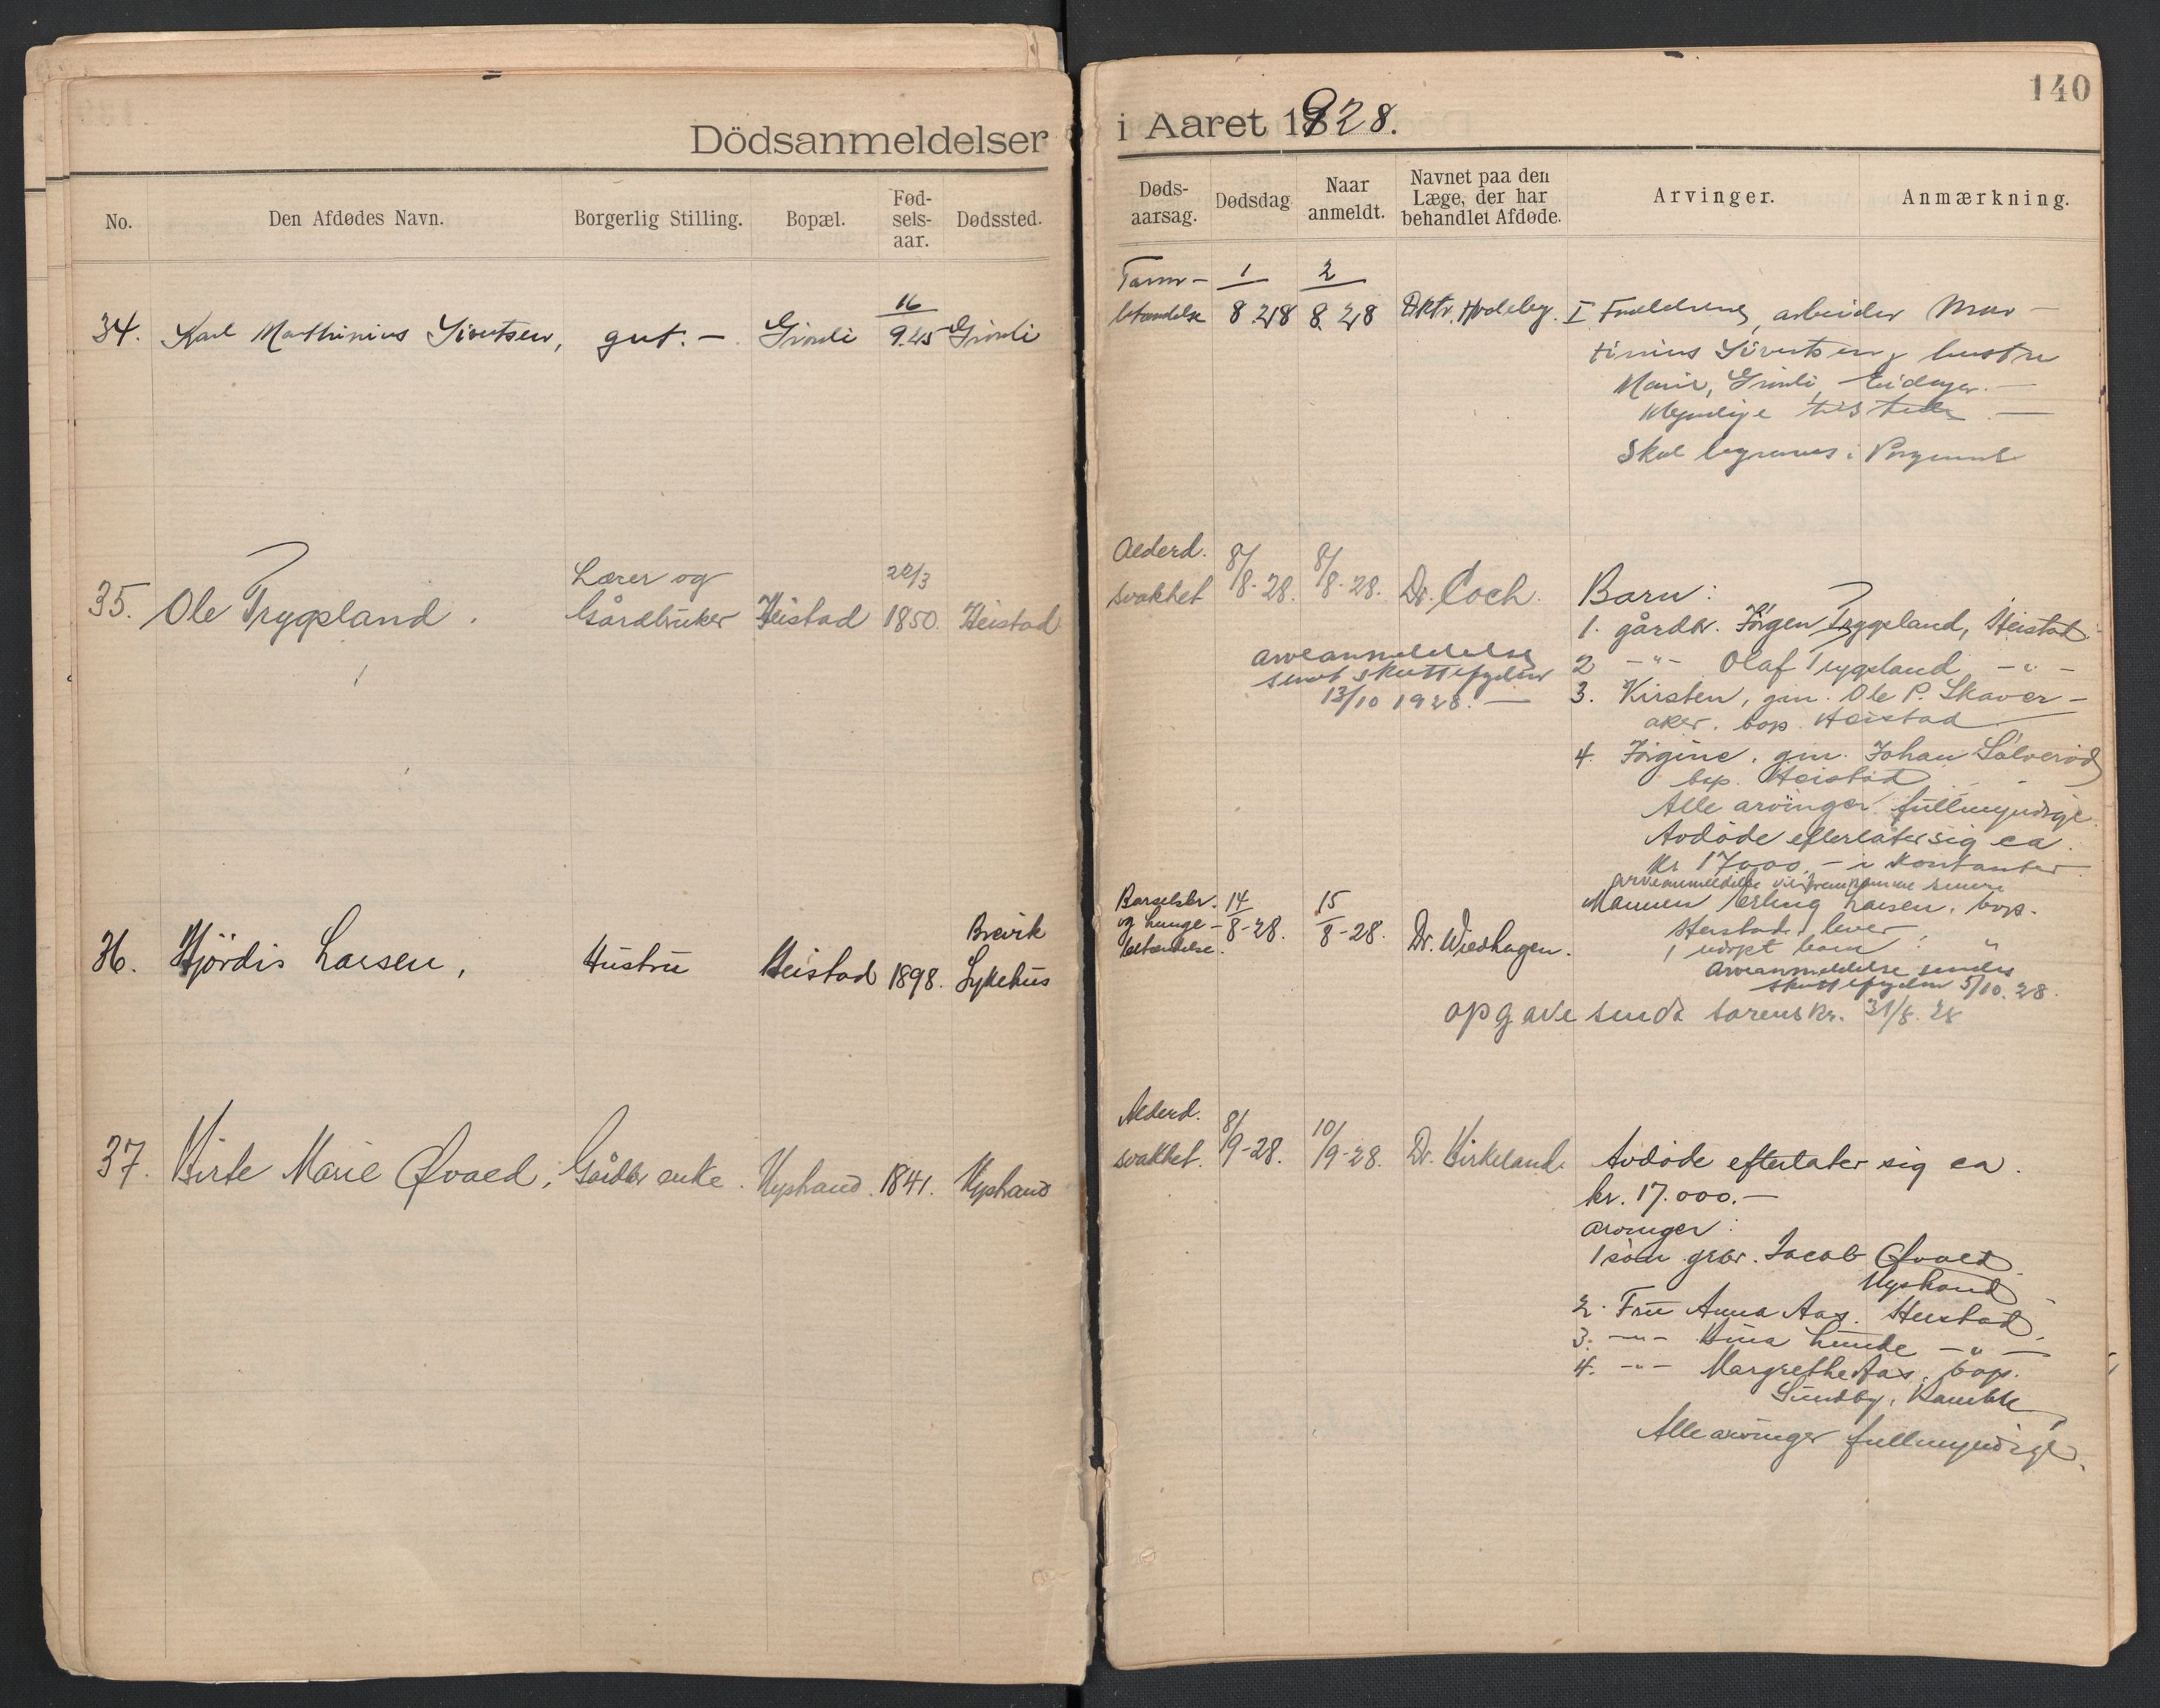 140
Dödsanmeldelser i Aaret 1928.
No. Den Afdødes Navn. Borgerlig Stilling. Bopæl. Fød-sels-aar. Dødssted. Døds-aarsag. Dødsdag Naar anmeldt. Navnet paa den Læge, der har behandlet Afdøde. Arvinger. Anmærkning.
34. Karl Mathinius Sivertsen, gut. – Grönli 16/9.25 Grönli
Tarm-
betændelse 1/8.28 2/8.28 Dktr.
I Foreldrene, arbeider Mar-
tinius Sivertsen og hustru
Marie, Grönli, Eidanger. –
Myndige tilstede –
Skal begraves i Porsgrund
35. Ole Trygsland. Lærer og
Gårdbruker Heistad 20/3 1850. Heistad
Alderd.
svakhet 8/8-28. 8/8-28. Dr. Coch.
arveanmeldelse
sendt skattefogden
13/10 1928. –
Barn:
1. gårdbr. Jörgen Trygsland, Heistad
2 –"– Olaf Trygsland –"–
3. Kirsten, gm. Ole P. Skaver-
aker. bop. Heistad
4. Jörgine, gm. Johan Sölveröd
bop. Heistad
Alle arvinger fullmyndige.
Avdöde efterlater sig ca.
kr 17.000,– i kontanter
arveanmeldelse vil fremkomme senere
36. Hjördis Larsen, Hustru Heistad 1898. Brevik
Sykehus
Barselsbr.
og Lunge-
betændelse. 14/8-28. 15/8-28. Dr. Wiedhagen.
Mannen Erling Larsen, bop.
Heistad, lever
1 barn "
Arveanmeldelse sendes
skattefogden 5/10.28.
opgave sendt sorenskr. 31/8.28
37. Birte Marie Qvaed, Gårdbr enke. Nystrand. 1841. Nystrand
Alderd.
svakhet. 8/9-28. 10/9-28. Dr. Kirkeland.
Avdöde efterlater sig ca.
kr. 17.000.–
arvinger:
1 sön grbr. Jacob Qvaed
Nystrand
2. Fru Anna Aas. Heistad.
3. –"– Lunde –"–
4. –"– Margrethe Aas, bop.
Sundby, Bamble
Alle arvinger fullmyndige.